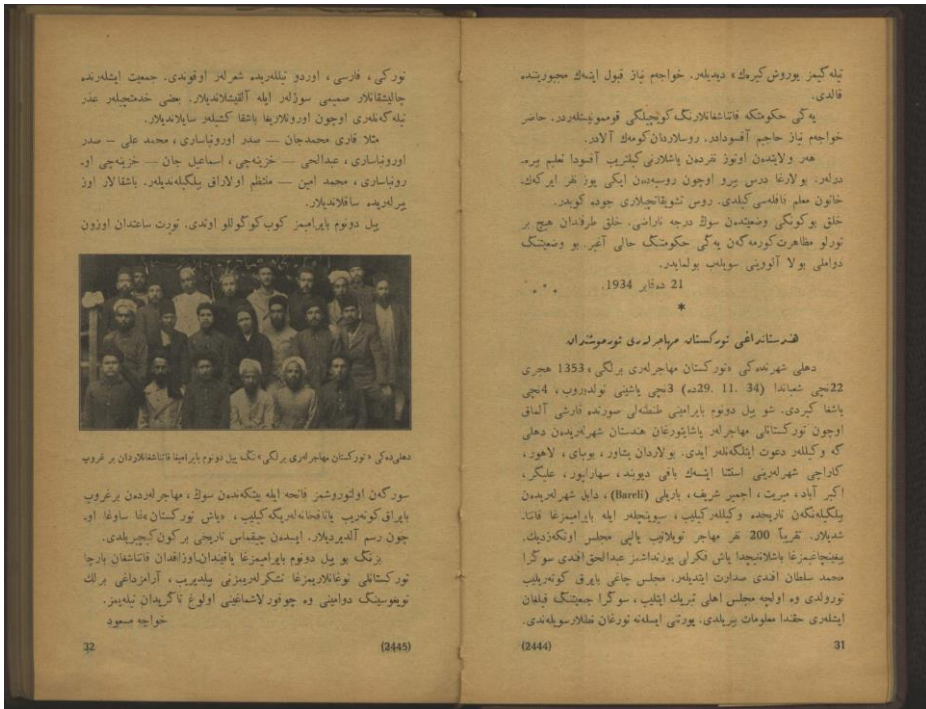 تیله‌گیمز یوروش کیره‌ك» دیدیلر. خواجه‌م نیاز قبول ایتمه‌ك مجبوریتنده
قالدی.
یه‌گی حکومتکه قاتناشقانلارنگ کوپچیلگی قوممونیستلردر. حاضر
خواجه‌م نیاز حاجیم آقسودادر. روسلاردان کومه‌ك آلادر.
هه‌ر ولایتدن اوتوز نفردن یاشلارنی کیلتریب آقسودا تعلیم بیره‌
درلر. بولارغا درس بیرو اوچون روسیه‌دن ایکی یوز نفر ایرکه‌ك،
خاتون معلم قافله‌سی کیلدی. روس تشویقاتچیلاری جوده کوبدر.
خلق بوکونگی وضعیتدن سوڭ درجه ناراضی. خلق طرفدان هیچ بر
تورلو مظاهرت کورمه‌گه‌ن یه‌گی حکومتنگ حالی آغیر. بو وضعیتنگ
دواملی بولا آلووینی سویله‌ب بولمایدر.
21 ده‌قابر 1934.
*
هندستانداغی تورکستان مهاجرلری تورموشندان
دهلی شهرنده‌کی «تورکستان مهاجرلری برلگی» 1353 هجری
22نچی شعباندا (34 .11 .29ده) 3نچی یاشینی تولدوروب، 4نچی
یاشقا کیردی. شو ییل دونوم بایرامینی طنطنه‌لی صورتده قارشی آلماق
اوچون تورکستانلی مهاجرلر یاشایتورغان هندستان شهرلریدن دهلی
گه وکیللر دعوت ایتلگه‌نلر ایدی. بولاردان پشاور، بومبای، لاهور،
کاراچی شهرلرینی استثنا ایتسه‌ك باقی دیوبند، سهارانپور، علیگر،
اکبر آباد، میرت، اجمیر شریف، باریلی (Bareli)، دابل شهرلریدن
بیلگیله‌نگه‌ن تاریخده وکیللر کیلیب، سیوینچلر ایله بایرامیمزغا قاتنا‌
شدیلار. تقریباً 200 نفر مهاجر توپلانیب یالپی مجلس اوتکه‌زدیك.
ییغینچاغیمزغا باشلانیچدا یاش فکرلی یورتداشمز عبدالحق افندی سوگرا
محمد سلطان افندی صدارت ایتدیلر. مجلس چاغی بایرق کوته‌ریلیب
تورولدی وه اولجه مجلس اهلی تبریك ایتلیب، سوگرا جمعیتنگ قیلغان
ایشلری حقندا معلومات بیریلدی. یورتنی ایسله‌ته تورغان نطقلار سویله‌ندی.
(2444)
31
تورکی، فارسی، اوردو تیللریده شعرلر اوقوندی. جمعیت ایشلرنده
چالیشقانلار صمیمی سوزلر ایله آلقیشلاندیلار. بعضی خدمتچیلر عذر
تیله‌گه‌نلری اوچون اورونلاریغا باشقا کشیلر سایلاندیلار.
مثلا قاری محمدجان — صدر اورونباساری، محمد علی — صدر
اورونباساری، عبدالحی — خزینه‌چی، اسماعیل جان — خزینه‌چی او‌
رونباساری، محمد امین — منتظم اولاراق بیلگیله‌ندیلر. باشقالار اوز
ییرلریده ساقلاندیلار.
ییل دونوم بایرامیمز کوب کوگوللو اوتدی. تورت ساعتدان اوزون
دهلی‌ده‌کی «تورکستان مهاجرلری برلگی» نگ ییل دونوم بایرامیغا قاتناشقانلاردان بر غروپ
سورگه‌ن اولتوروشمز فاتحه ایله بیتکه‌ندن سوڭ، مهاجرلردن بر غروپ
بایراق کوته‌ریب یاتاقخانه‌لریگه کیلیب، «یاش تورکستان»غا ساوغا او‌
چون رسم آلدیردیلار. ایسدن چیقماس تاریخی بر کون کیچیریلدی.
بزنگ بو ییل دونوم بایرامیمزغا یاقیندان‌اوزاقدان قاتناشقان بارچا
تورکستانلی توغانلاریمزغا تشکرلریمزنی بیلدیریب، آرامزداغی برلك
تویغوسینگ دوامینی وه چوقورلاشماغینی اولوغ تاگریدان تیله‌یمز.
خواجه مسعود
(2445)
32